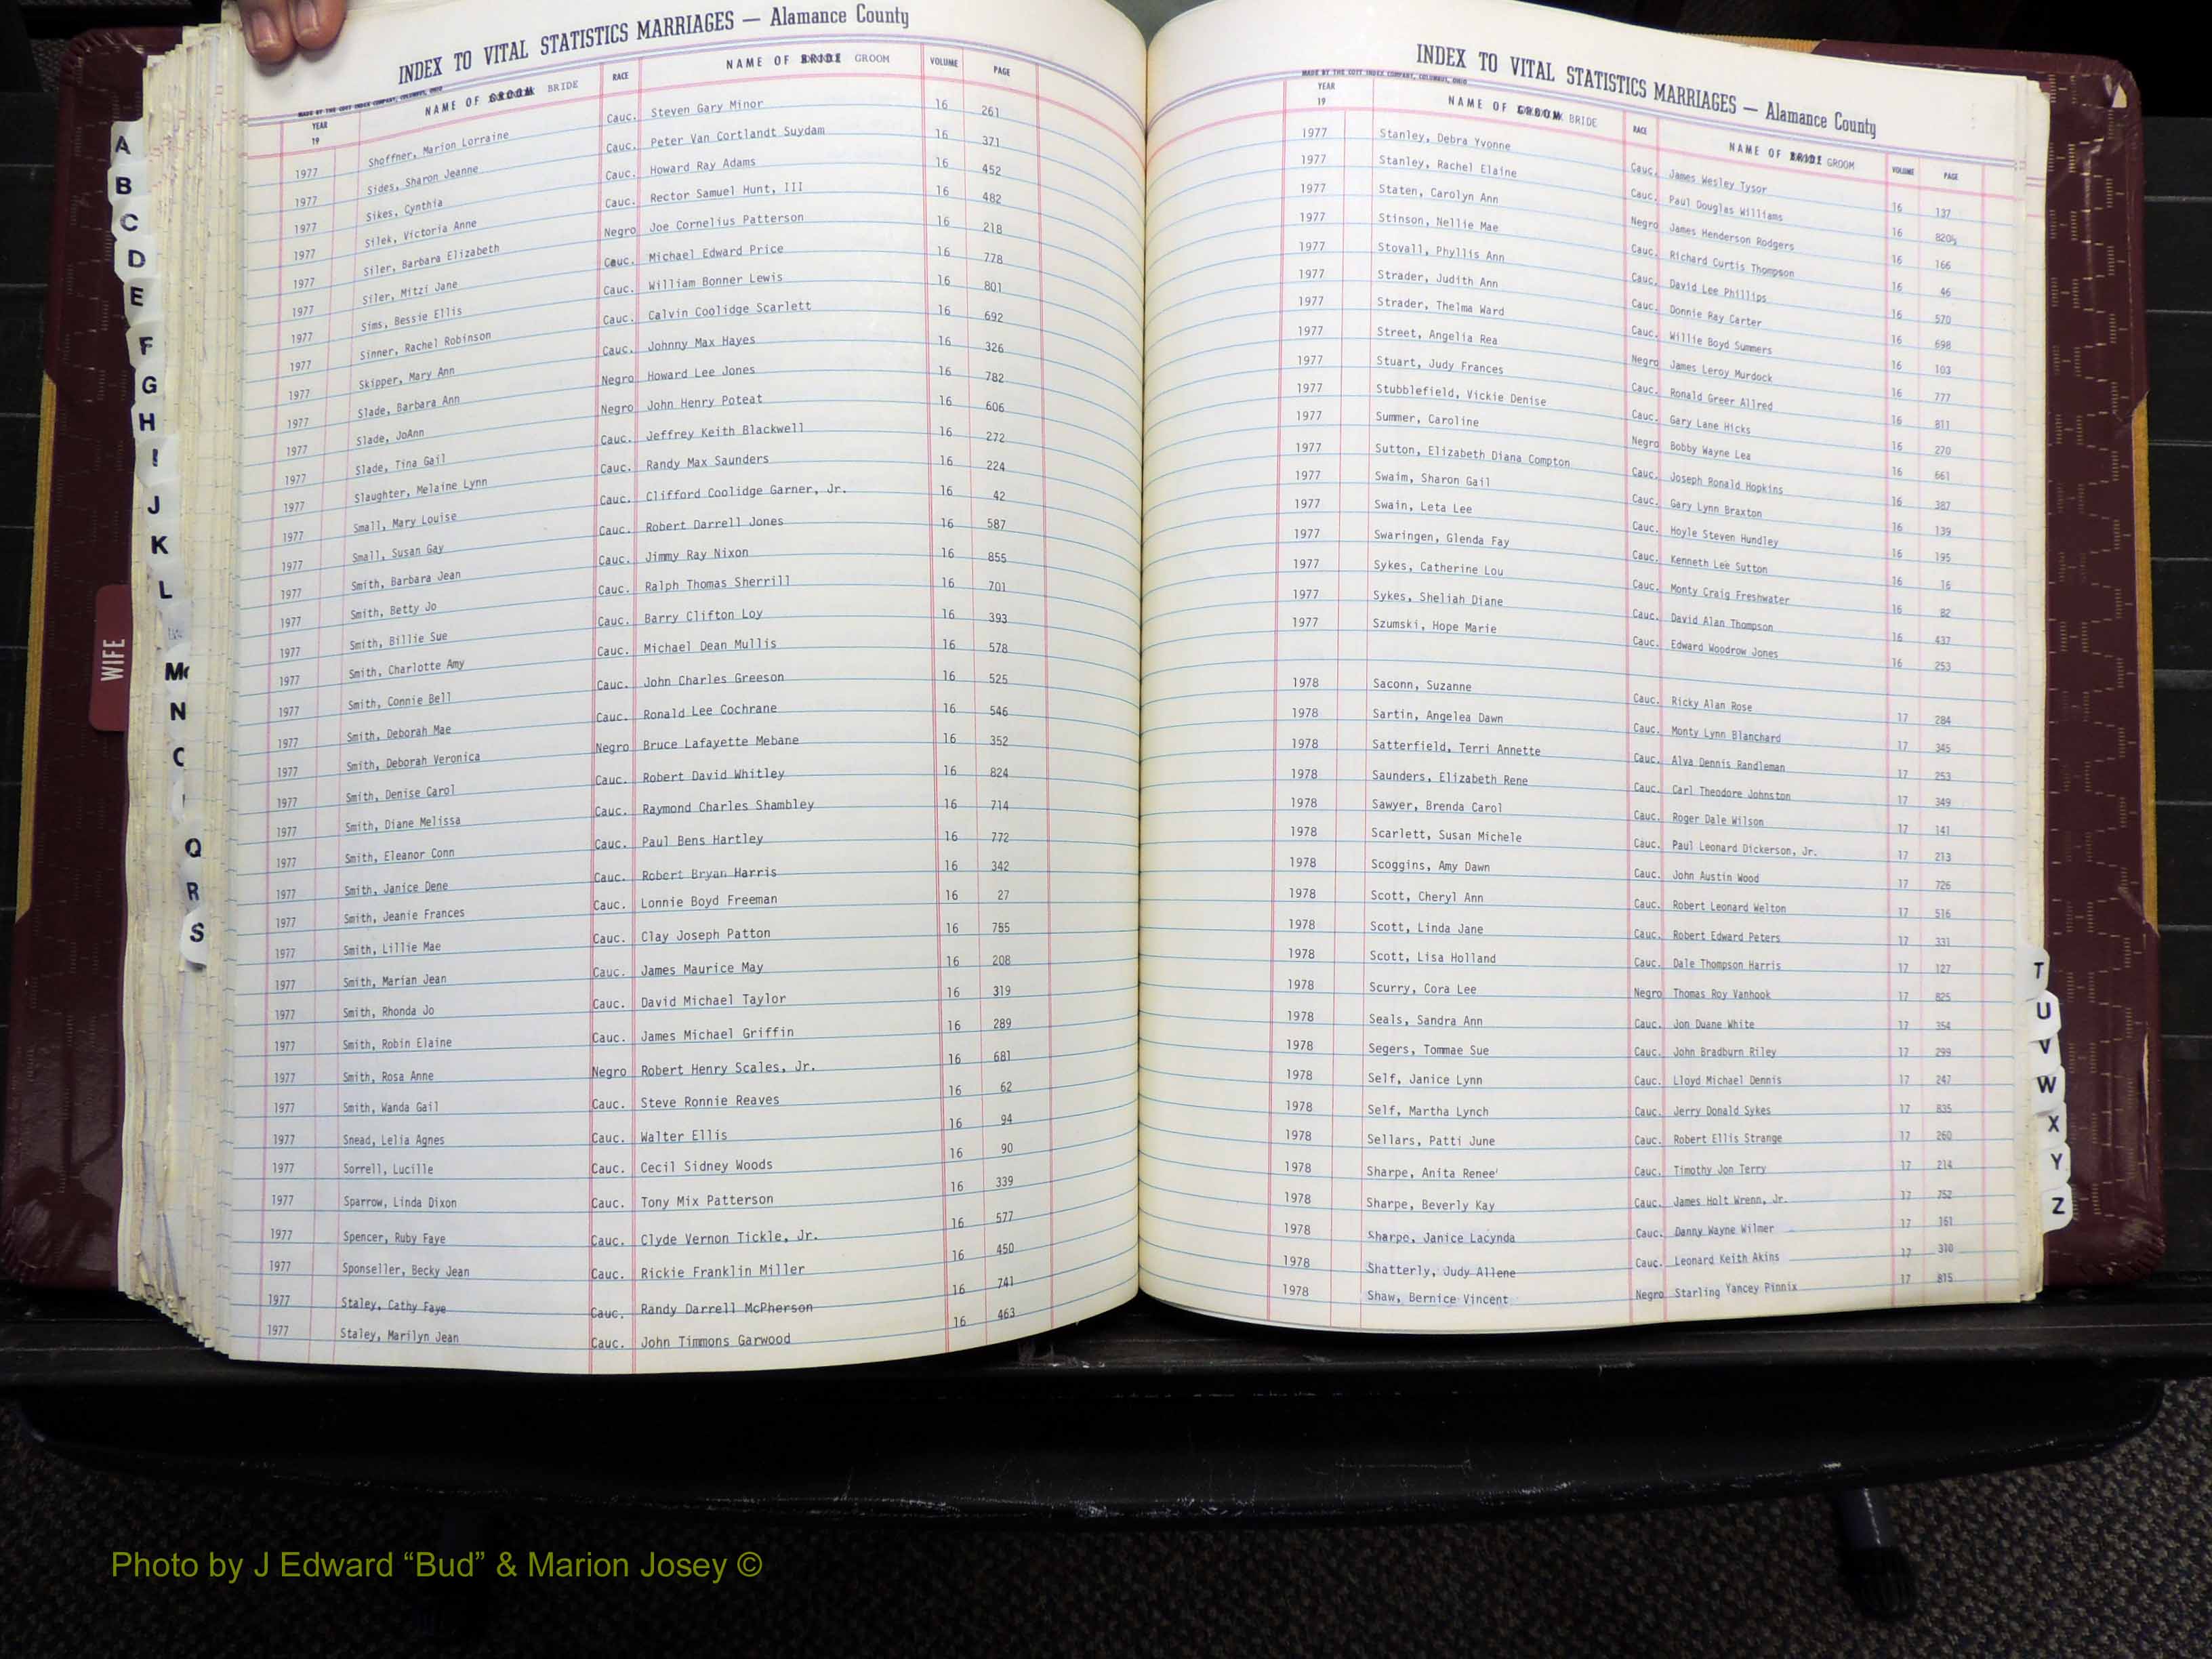 INDEX TO VITAL STATISTICS MARRIAGES — Alamance County
MADE BY THE COTT INDEX COMPANY, COLUMBUS, OHIO
YEAR 19 NAME OF GROOM BRIDE RACE NAME OF BRIDE GROOM VOLUME PAGE
1977 Shoffner, Marion Lorraine Cauc. Steven Gary Minor 16 261
1977 Sides, Sharon Jeanne Cauc. Peter Van Cortlandt Suydam 16 371
1977 Sikes, Cynthia Cauc. Howard Ray Adams 16 452
1977 Silek, Victoria Anne Cauc. Rector Samuel Hunt, III 16 482
1977 Siler, Barbara Elizabeth Negro Joe Cornelius Patterson 16 218
1977 Siler, Mitzi Jane Cauc. Michael Edward Price 16 778
1977 Sims, Bessie Ellis Cauc. William Bonner Lewis 16 801
1977 Sinner, Rachel Robinson Cauc. Calvin Coolidge Scarlett 16 692
1977 Skipper, Mary Ann Cauc. Johnny Max Hayes 16 326
1977 Slade, Barbara Ann Negro Howard Lee Jones 16 782
1977 Slade, JoAnn Negro John Henry Poteat 16 606
1977 Slade, Tina Gail Cauc. Jeffrey Keith Blackwell 16 272
1977 Slaughter, Melaine Lynn Cauc. Randy Max Saunders 16 224
1977 Small, Mary Louise Cauc. Clifford Coolidge Garner, Jr. 16 42
1977 Small, Susan Gay Cauc. Robert Darrell Jones 16 587
1977 Smith, Barbara Jean Cauc. Jimmy Ray Nixon 16 855
1977 Smith, Betty Jo Cauc. Ralph Thomas Sherrill 16 701
1977 Smith, Billie Sue Cauc. Barry Clifton Loy 16 393
1977 Smith, Charlotte Amy Cauc. Michael Dean Mullis 16 578
1977 Smith, Connie Bell Cauc. John Charles Greeson 16 525
1977 Smith, Deborah Mae Cauc. Ronald Lee Cochrane 16 546
1977 Smith, Deborah Veronica Negro Bruce Lafayette Mebane 16 352
1977 Smith, Denise Carol Cauc. Robert David Whitley 16 824
1977 Smith, Diane Melissa Cauc. Raymond Charles Shambley 16 714
1977 Smith, Eleanor Conn Cauc. Paul Bens Hartley 16 772
1977 Smith, Janice Dene Cauc. Robert Bryan Harris 16 342
1977 Smith, Jeanie Frances Cauc. Lonnie Boyd Freeman 16 27
1977 Smith, Lillie Mae Cauc. Clay Joseph Patton 16 755
1977 Smith, Marian Jean Cauc. James Maurice May 16 208
1977 Smith, Rhonda Jo Cauc. David Michael Taylor 16 319
1977 Smith, Robin Elaine Cauc. James Michael Griffin 16 289
1977 Smith, Rosa Anne Negro Robert Henry Scales, Jr. 16 681
1977 Smith, Wanda Gail Cauc. Steve Ronnie Reaves 16 62
1977 Snead, Lelia Agnes Cauc. Walter Ellis 16 94
1977 Sorrell, Lucille Cauc. Cecil Sidney Woods 16 90
1977 Sparrow, Linda Dixon Cauc. Tony Mix Patterson 16 339
1977 Spencer, Ruby Faye Cauc. Clyde Vernon Tickle, Jr. 16 577
1977 Sponseller, Becky Jean Cauc. Rickie Franklin Miller 16 450
1977 Staley, Cathy Faye Cauc. Randy Darrell McPherson 16 741
1977 Staley, Marilyn Jean Cauc. John Timmons Garwood 16 463
A
B
C
D
E
F
G
H
I
J
K
L
Mc
N
Q
R
S
WIFE
INDEX TO VITAL STATISTICS MARRIAGES — Alamance County
MADE BY THE COTT INDEX COMPANY, COLUMBUS, OHIO
YEAR 19 NAME OF GROOM BRIDE RACE NAME OF BRIDE GROOM VOLUME PAGE
1977 Stanley, Debra Yvonne Cauc. James Wesley Tysor 16 137
1977 Stanley, Rachel Elaine Cauc. Paul Douglas Williams 16 820½
1977 Staten, Carolyn Ann Negro James Henderson Rodgers 16 166
1977 Stinson, Nellie Mae Cauc. Richard Curtis Thompson 16 46
1977 Stovall, Phyllis Ann Cauc. David Lee Phillips 16 570
1977 Strader, Judith Ann Cauc. Donnie Ray Carter 16 698
1977 Strader, Thelma Ward Cauc. Willie Boyd Summers 16 103
1977 Street, Angelia Rea Negro James Leroy Murdock 16 777
1977 Stuart, Judy Frances Cauc. Ronald Greer Allred 16 811
1977 Stubblefield, Vickie Denise Cauc. Gary Lane Hicks 16 270
1977 Summer, Caroline Negro Bobby Wayne Lea 16 661
1977 Sutton, Elizabeth Diana Compton Cauc. Joseph Ronald Hopkins 16 387
1977 Swaim, Sharon Gail Cauc. Gary Lynn Braxton 16 139
1977 Swain, Leta Lee Cauc. Hoyle Steven Hundley 16 195
1977 Swaringen, Glenda Fay Cauc. Kenneth Lee Sutton 16 16
1977 Sykes, Catherine Lou Cauc. Monty Craig Freshwater 16 82
1977 Sykes, Sheliah Diane Cauc. David Alan Thompson 16 437
1977 Szumski, Hope Marie Cauc. Edward Woodrow Jones 16 253
1978 Saconn, Suzanne Cauc. Ricky Alan Rose 17 284
1978 Sartin, Angelea Dawn Cauc. Monty Lynn Blanchard 17 345
1978 Satterfield, Terri Annette Cauc. Alva Dennis Randleman 17 253
1978 Saunders, Elizabeth Rene Cauc. Carl Theodore Johnston 17 349
1978 Sawyer, Brenda Carol Cauc. Roger Dale Wilson 17 141
1978 Scarlett, Susan Michele Cauc. Paul Leonard Dickerson, Jr. 17 213
1978 Scoggins, Amy Dawn Cauc. John Austin Wood 17 726
1978 Scott, Cheryl Ann Cauc. Robert Leonard Welton 17 516
1978 Scott, Linda Jane Cauc. Robert Edward Peters 17 331
1978 Scott, Lisa Holland Cauc. Dale Thompson Harris 17 127
1978 Scurry, Cora Lee Negro Thomas Roy Vanhook 17 825
1978 Seals, Sandra Ann Cauc. Jon Duane White 17 354
1978 Segers, Tommae Sue Cauc. John Bradburn Riley 17 299
1978 Self, Janice Lynn Cauc. Lloyd Michael Dennis 17 247
1978 Self, Martha Lynch Cauc. Jerry Donald Sykes 17 835
1978 Sellars, Patti June Cauc. Robert Ellis Strange 17 260
1978 Sharpe, Anita Renee' Cauc. Timothy Jon Terry 17 214
1978 Sharpe, Beverly Kay Cauc. James Holt Wrenn, Jr. 17 752
1978 Sharpe, Janice Lacynda Cauc. Danny Wayne Wilmer 17 161
1978 Shatterly, Judy Allene Cauc. Leonard Keith Akins 17 310
1978 Shaw, Bernice Vincent Negro Starling Yancey Pinnix 17 815
T
U
V
W
X
Y
Z
Photo by J Edward “Bud” & Marion Josey ©